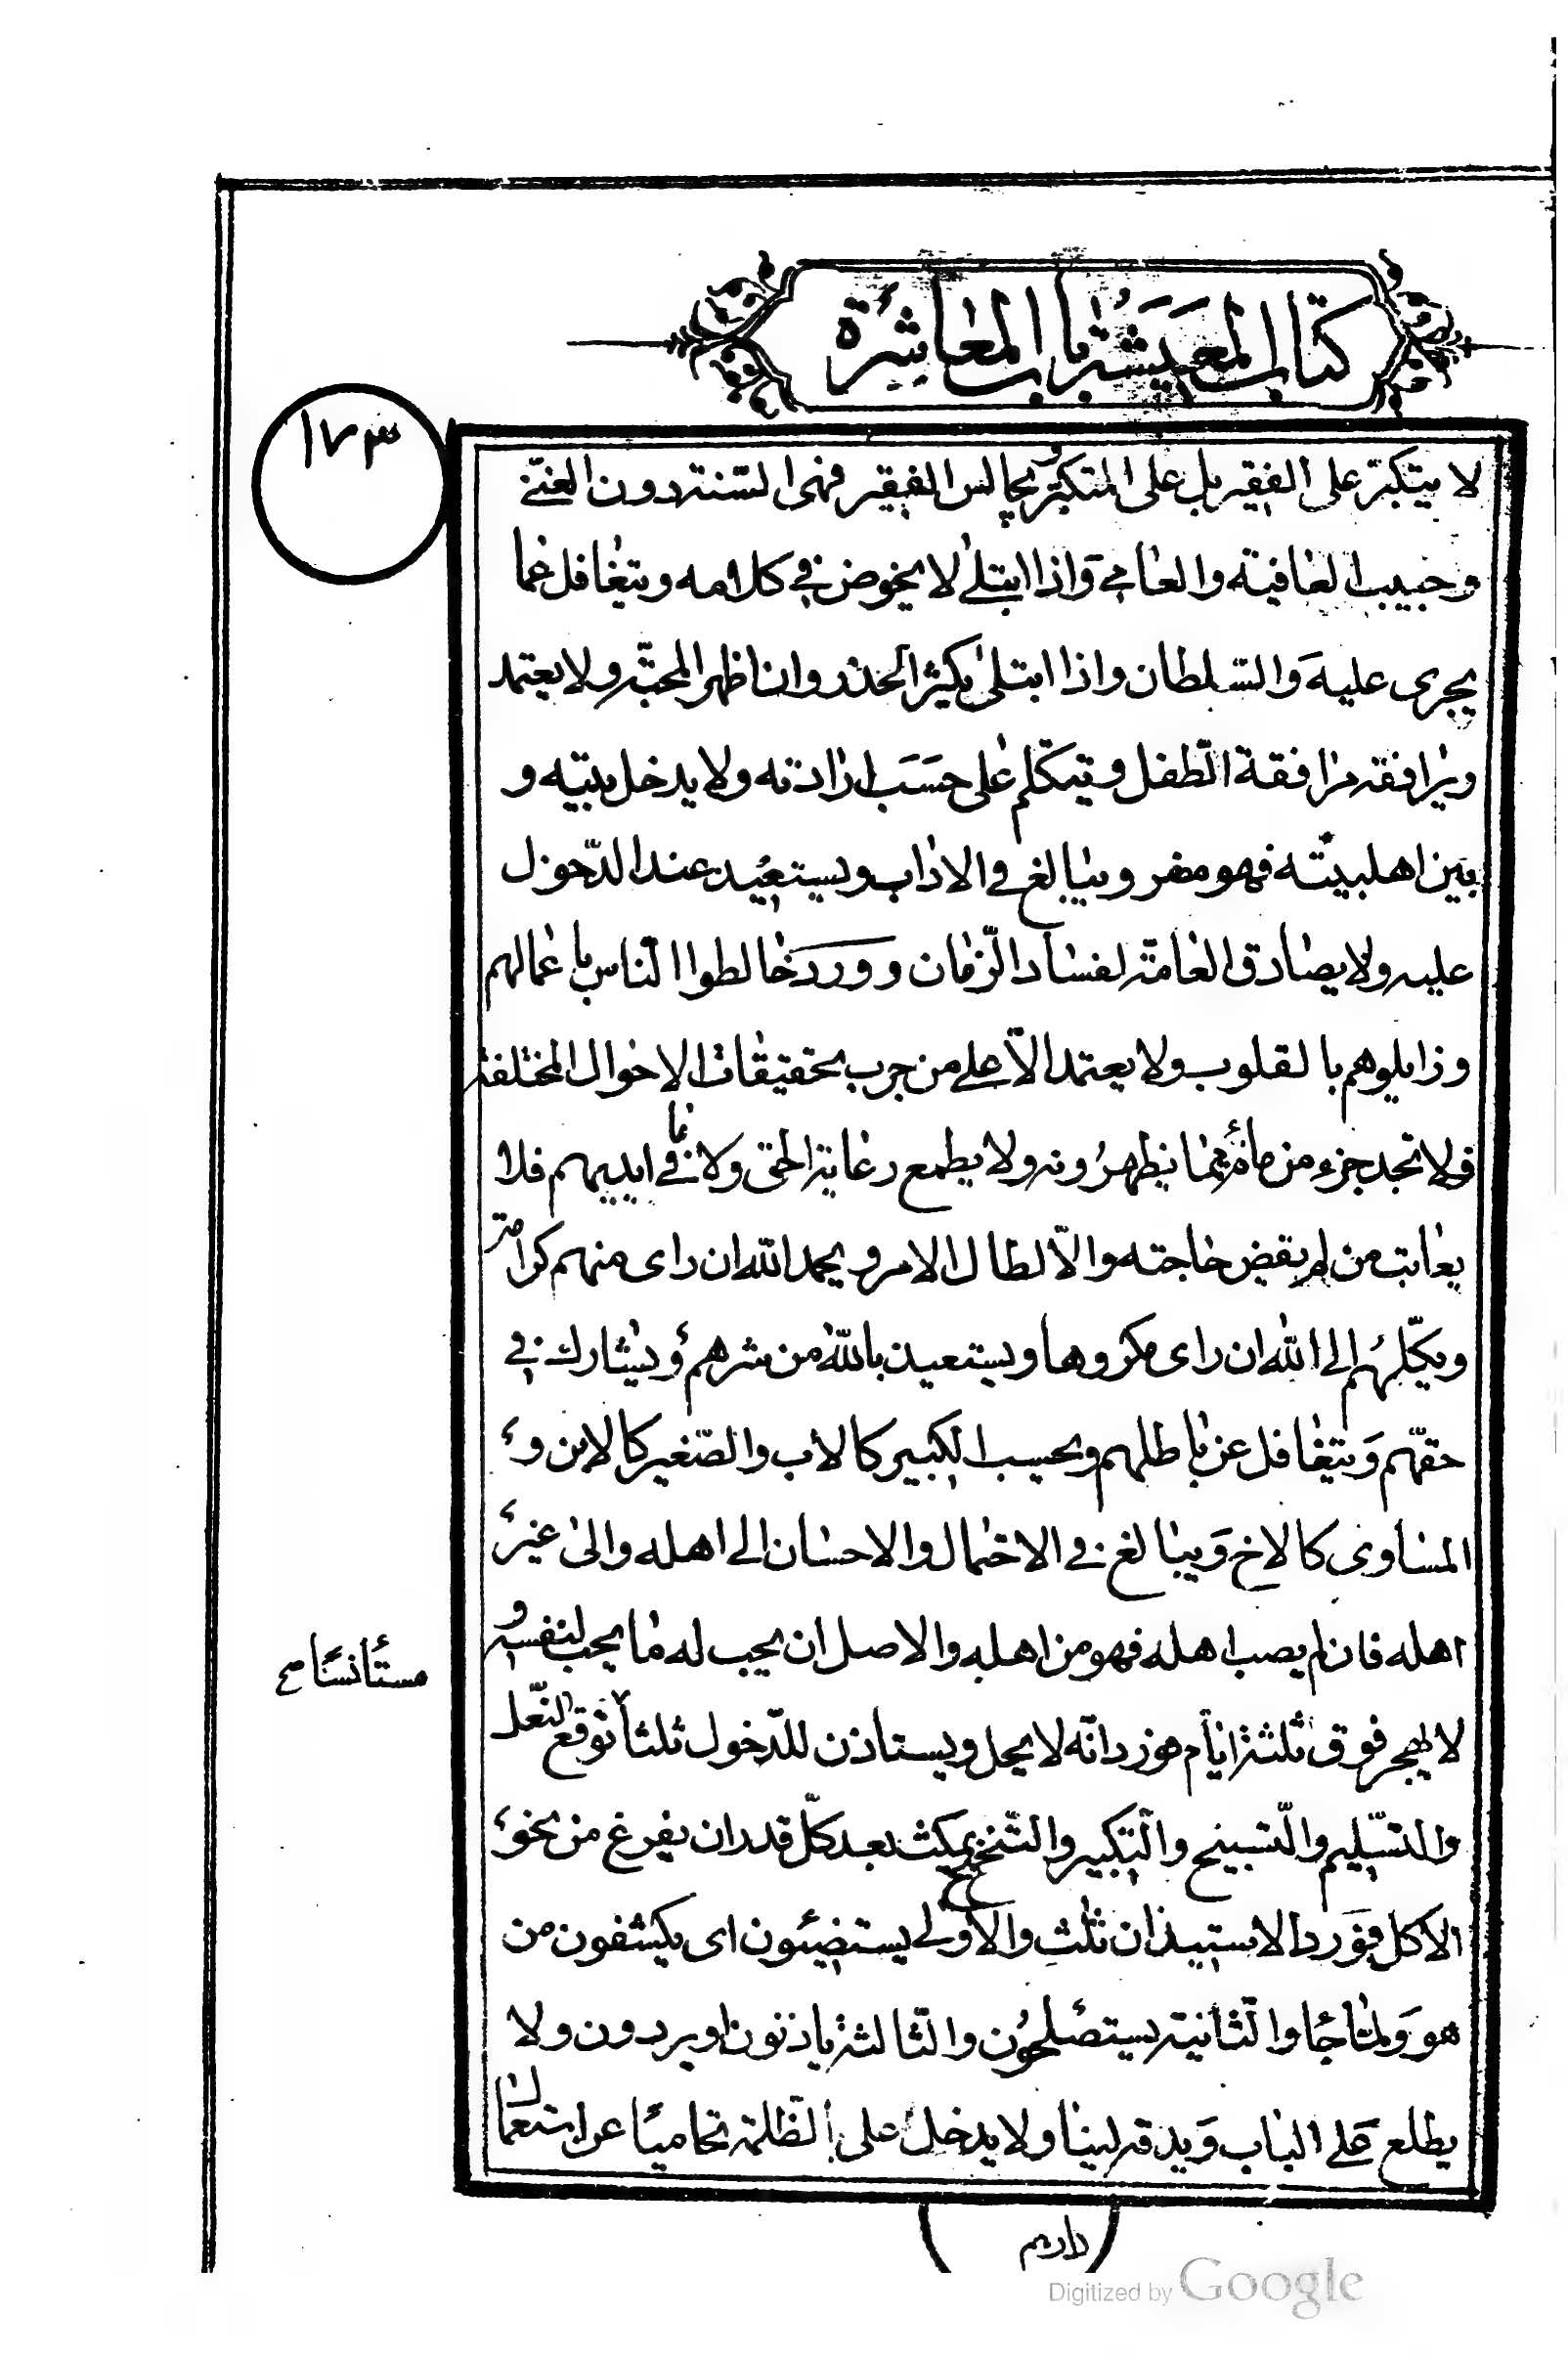 كتاب المعيشة باب المعاشرة
١٧٣
لا يتكبّر على الفقير بل على المتكبّر و يجالس الفقير فهى السّنة دون الغنىّ
و حبيب العافية والعامى واذا ابتلى لا يخوض فى كلامه و يتغافل عمّا
يجرى عليه والسّلطان واذا ابتلى يكثر الحذر وان اظهر المحبّة ولا يعتمد
ويرافقه مرافقة الطّفل و يتكلّم على حسب ارادته ولا يدخل بينه و
بين اهلبيته فهو مضر ويبالغ فى الاداب ويستعيد عند الدّخول
عليه ولا يصادق العامّة لفساد الزّمان و ورد خالطوا النّاس باعمالهم
وزايلوهم بالقلوب ولا يعتمد الاّ على من جرب بتحقيقات الاحوال المختلفة
فلا تجد جزء من مائة ممّا يظهرونه ولا يطمع رعاية الحق ولا ما فى ايديهم فلا
يعاتب من لم يقض حاجته والاّ لطال الامر و يحمد الله ان راى منهم كرامة
ويكلهم الى الله ان راى مكروها ويستعيذ بالله من شرهم و يشارك فى
حقهم و يتغافل عن باطلهم ويحسب الكبير كالاب والصّغير كالابن و
المساوى كالاخ و يبالغ فى الاحتمال والاحسان الى اهله والى غير
اهله فان لم يصب اهله فهو من اهله والاصل ان يحب له ما يحب لنفسه و
مستأنسًا ح
لا يهجر فوق ثلثة ايّام فورد انّه لا يحل ويستاذن للدّخول ثلثا بوقع النّعل
والتسّليم والتّسبيح والتّكبير والتّنحنح يمكث بعد كلّ قدر ان يفرغ من نحو
الاكل فورد الاستيذان ثلث والاولى يستضيئون اى يكشفون من
هو ولما جا والثّانية يستصلحون والثّالثة ياذنون او يردون ولا
يطلع على الباب و يدقه لينا ولا يدخل على الظّلمة تحاميًا عن استعمال
دارهم
Digitized by Google